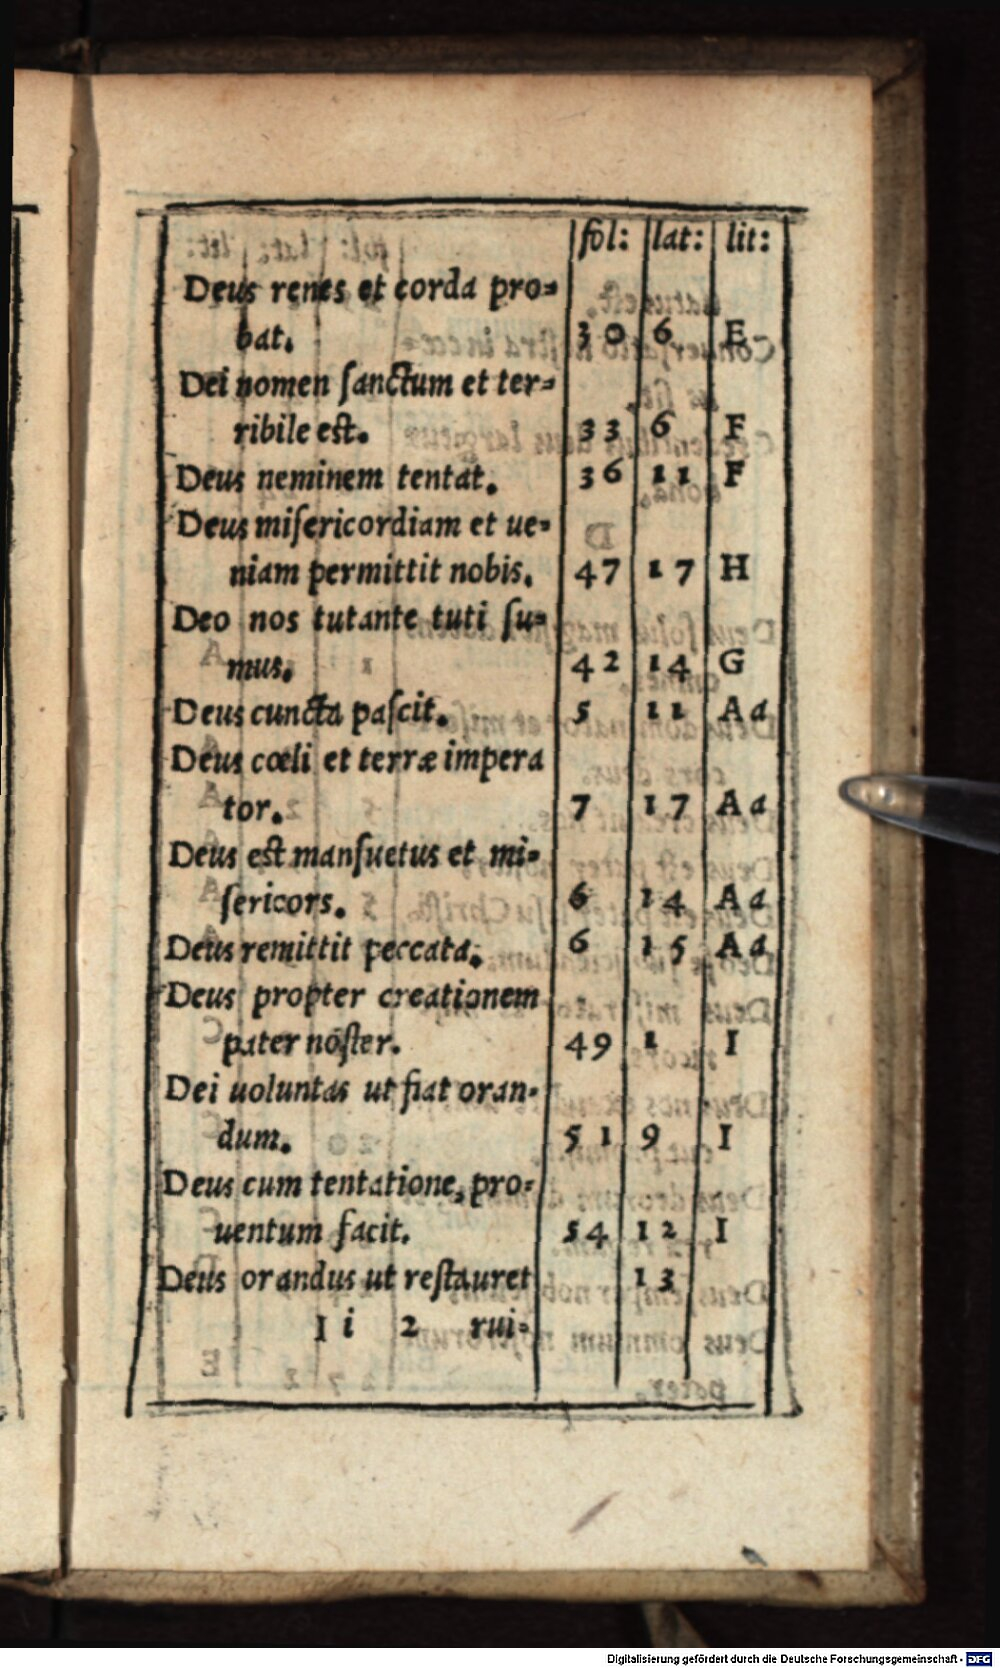 fol: lat: lit:
Deus renes et corda pro=
bat. 30 6 E
Dei nomen ſanctum et ter=
ribile est. 33 6 F
Deus neminem tentat. 36 11 F
Deus miſericordiam et ue=
niam permittit nobis. 47 17 H
Deo nos tutante tuti ſu=
mus. 42 14 G
Deus cuncta paſcit. 5 11 Aa
Deus cœli et terræ impera
tor. 7 17 Aa
Deus est manſuetus et mi=
ſericors. 6 14 Aa
Deus remittit peccata. 6 15 Aa
Deus propter creationem
pater noſter. 49 1 I
Dei uoluntas ut fiat oran=
dum. 51 9 I
Deus cum tentatione, pro=
uentum facit. 54 12 I
Deus orandus ut reſtauret 13
Ii 2 rui=
Digitalisierung gefördert durch die Deutsche Forschungsgemeinschaft - DFG